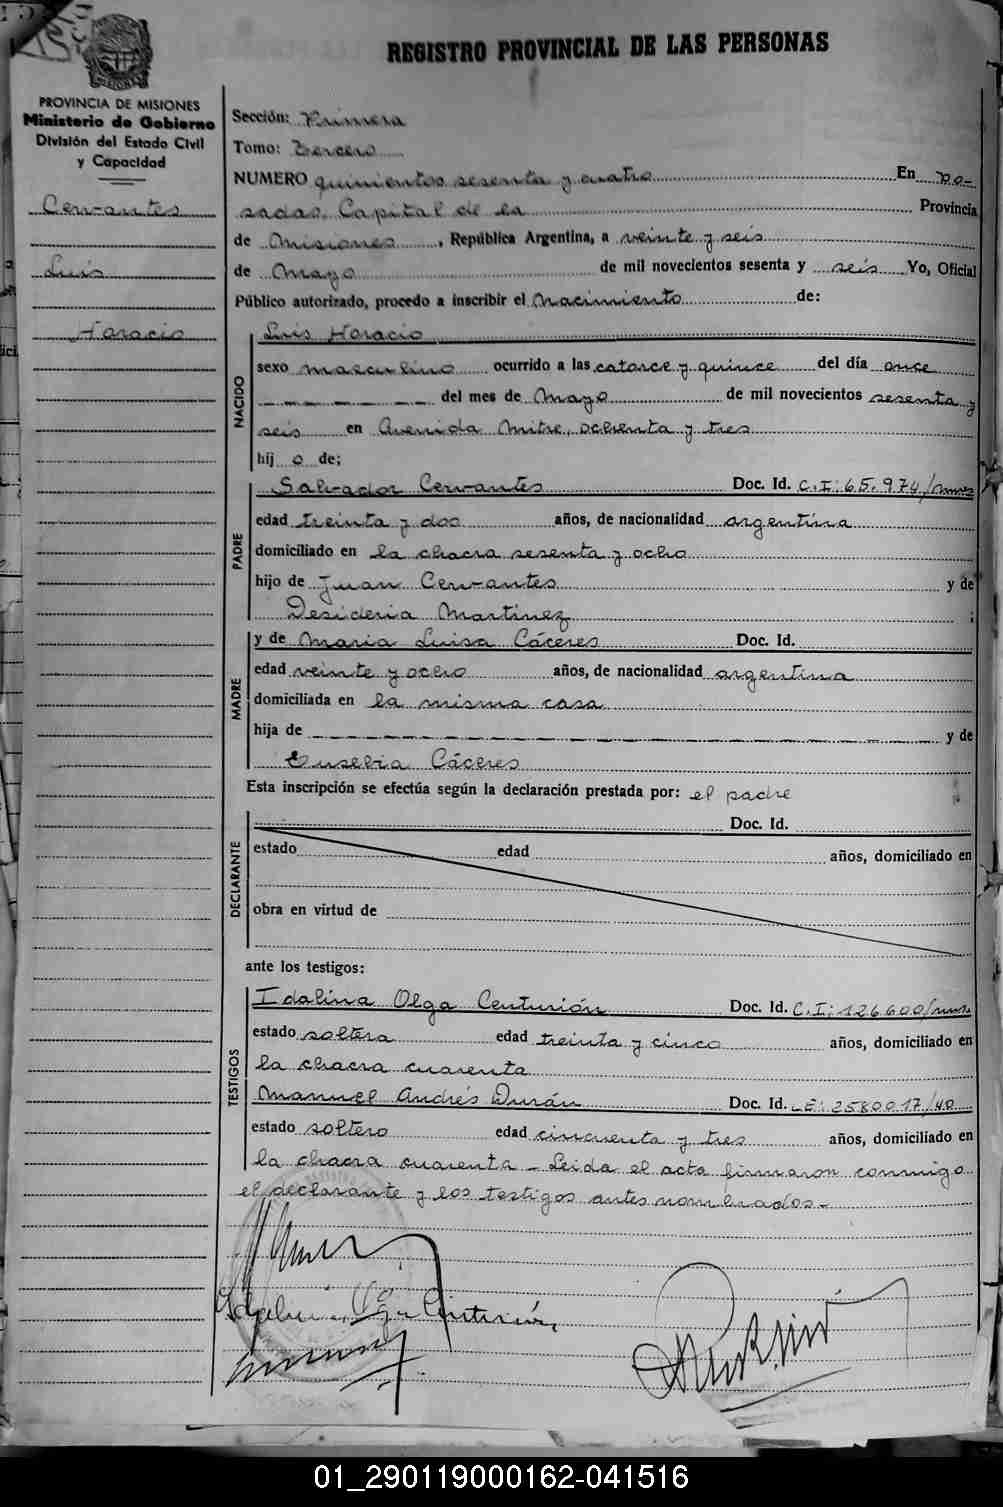 REGISTRO PROVINCIAL DE LAS PERSONAS
PROVINCIA DE MISIONES
Ministerio de Gobierno
División del Estado Civil
y Capacidad
Cervantes
Luis
Horacio
Sección: Primera
Tomo: Tercero
NUMERO quinientos sesenta y cuatro En Po-
sadas, Capital de la Provincia
de Misiones, República Argentina, a veinte y seis
de Mayo de mil novecientos sesenta y seis Yo, Oficial
Público autorizado, procedo a inscribir el nacimiento de:
NACIDO
Luis Horacio
sexo masculino ocurrido a las catorce y quince del día once
del mes de Mayo de mil novecientos sesenta y
seis en Avenida Mitre, ochenta y tres
hij o de;
PADRE
Salvador Cervantes Doc. Id. C.I: 65.974/mnes
edad treinta y dos años, de nacionalidad argentina
domiciliado en la chacra sesenta y ocho
hijo de Juan Cervantes y de
Desideria Martinez ;
MADRE
y de Maria Luisa Cáceres Doc. Id.
edad veinte y ocho años, de nacionalidad argentina
domiciliada en la misma casa
hija de y de
Eusebia Cáceres
Esta inscripción se efectúa según la declaración prestada por: el padre
DECLARANTE
Doc. Id.
estado edad años, domiciliado en
obra en virtud de
ante los testigos:
TESTIGOS
Idalina Olga Centurión Doc. Id. C.I: 126.600/mns.
estado soltera edad treinta y cinco años, domiciliado en
la chacra cuarenta
Manuel Andrés Durán Doc. Id. LE: 2580017/40
estado soltero edad cincuenta y tres años, domiciliado en
la chacra cuarenta - Leida el acta firmaron conmigo
el declarante y los testigos antes nombrados.-
Idalina Olga Centurión
01_290119000162-041516